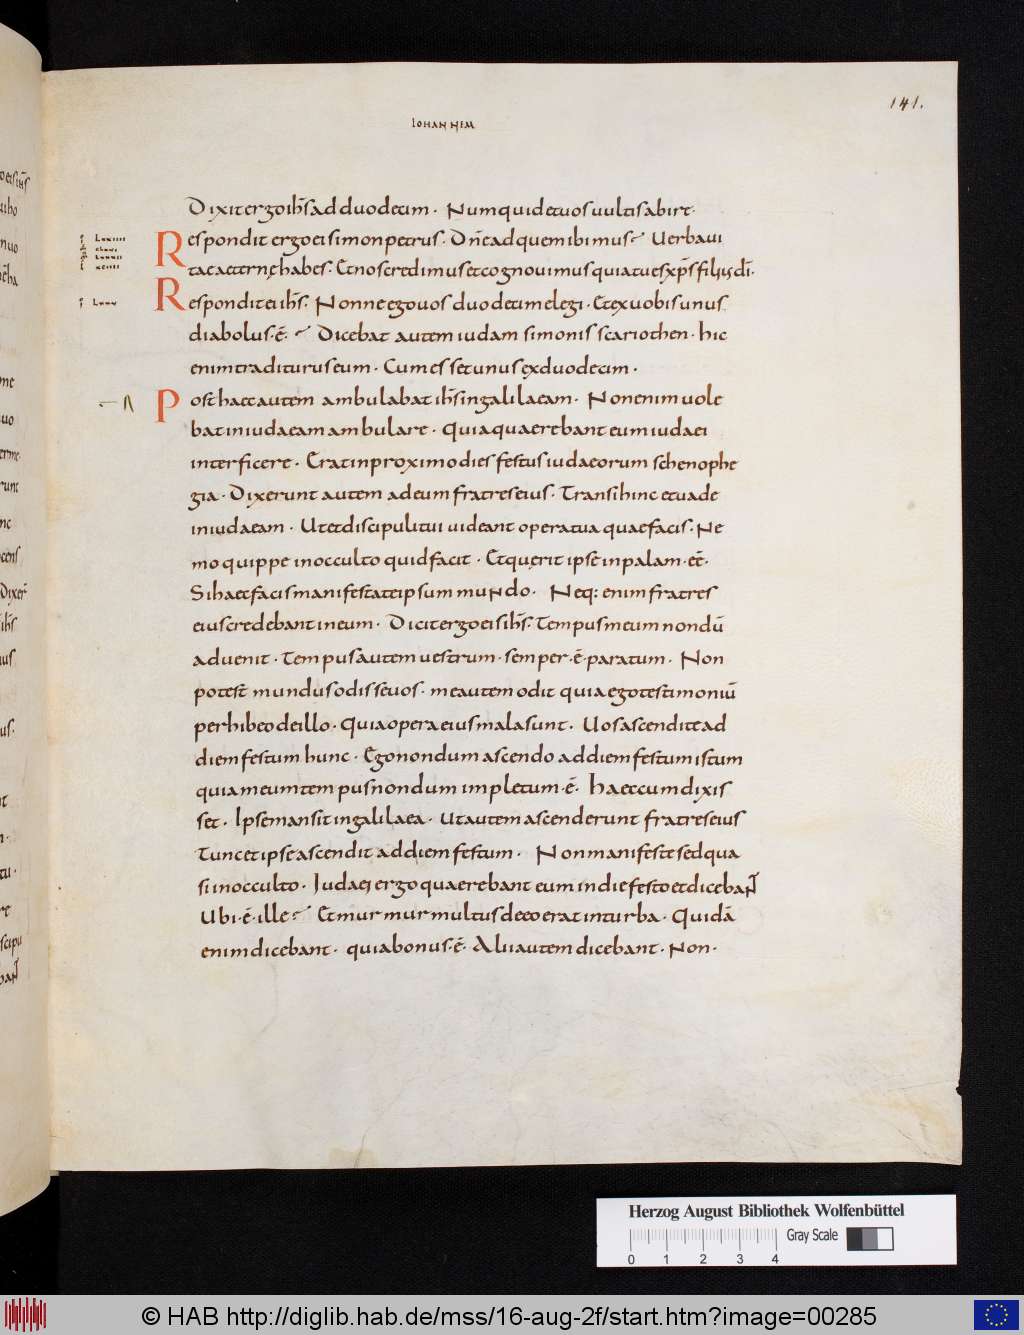 141.
IOHANNEM
Dixit ergo ihs̄ ad duodecim · Numquid et uos uultis abire ·
Respondit ergo ei simon petrus · Dn̄e ad quem ibimus Uerba ui
tae aeternę habes · Et nos credimus et cognouimus quia tu es xp̄s filius dī ·
Respondit ei ihs̄ · Nonne ego uos duodecim elegi · Et ex uobis unus
diabolus · ē · Dicebat autem iudam simonis scariothen · hic
enim traditurus eum · Cum esset unus ex duodecim ·
Post haec autem ambulabat ihs̄ in galilaeam · Non enim uole
bat in iudaeam ambulare · quia quaerebant eum iudaei
interficere · Erat in proximo dies festus iudaeorum schenophe
gia · Dixerunt autem ad eum fratres eius · Transi hinc et uade
in iudaeam · Ut et discipuli tui uideant opera tua quae facis · Ne
mo quippe in occulto quid facit · Et querit ipse in palam · eē ·
Si haec facis manifesta te ipsum mundo · Neq: enim fratres
eius credebant in eum · Dicit ergo eis ihs̄ · Tempus meum nondū
aduenit · Tempus autem uestrum · semper · ē · paratum · Non
potest mundus odisse uos · me autem odit quia ego testimoniū
perhibeo de illo · quia opera eius mala sunt · Uos ascendite ad
diem festum hunc · Ego non dum ascendo ad diem festum istum
quia meum tempus nondum impletum · ē · haec cum dixis
set · Ipse mansit in galilaea · Ut autem ascenderunt fratres eius
Tunc et ipse ascendit ad diem festum · Non manifeste sed qua
si in occulto · Iudaei ergo quaerebant eum in die festo et dicebant
Ubi · ē · ille Et murmur multus de eo erat in turba · Quidā
enim dicebant · quia bonus · ē · Alii autem dicebant · Non ·
Herzog August Bibliothek Wolfenbüttel
Gray Scale
0 1 2 3 4
© HAB http://diglib.hab.de/mss/16-aug-2f/start.htm?image=00285